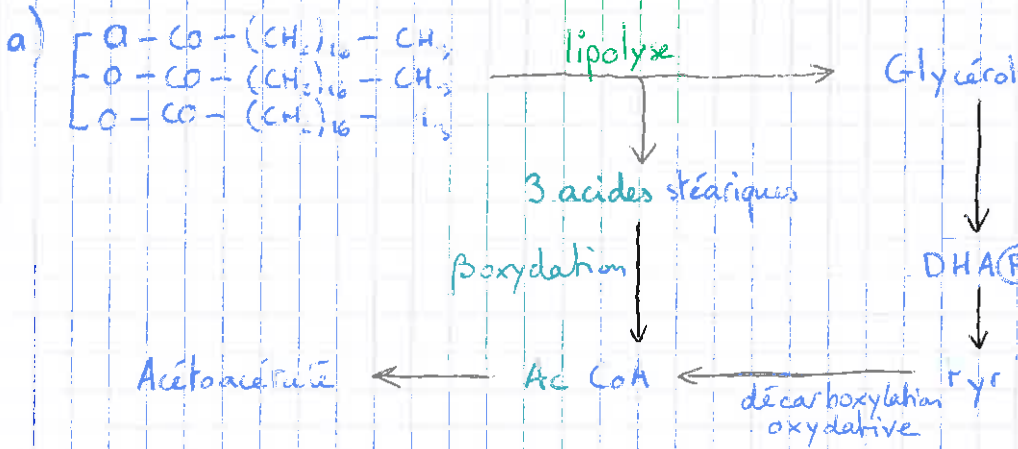 a)
O - CO - (CH₂)₁₆ - CH₃
O - CO - (CH₂)₁₆ - CH₃
O - CO - (CH₂)₁₆ -
lipolyse
Glycérol
3 acides stéariques
βoxydation
DHA(P
Acétoacétate
Ac CoA
Pyr
décarboxylation
oxydative